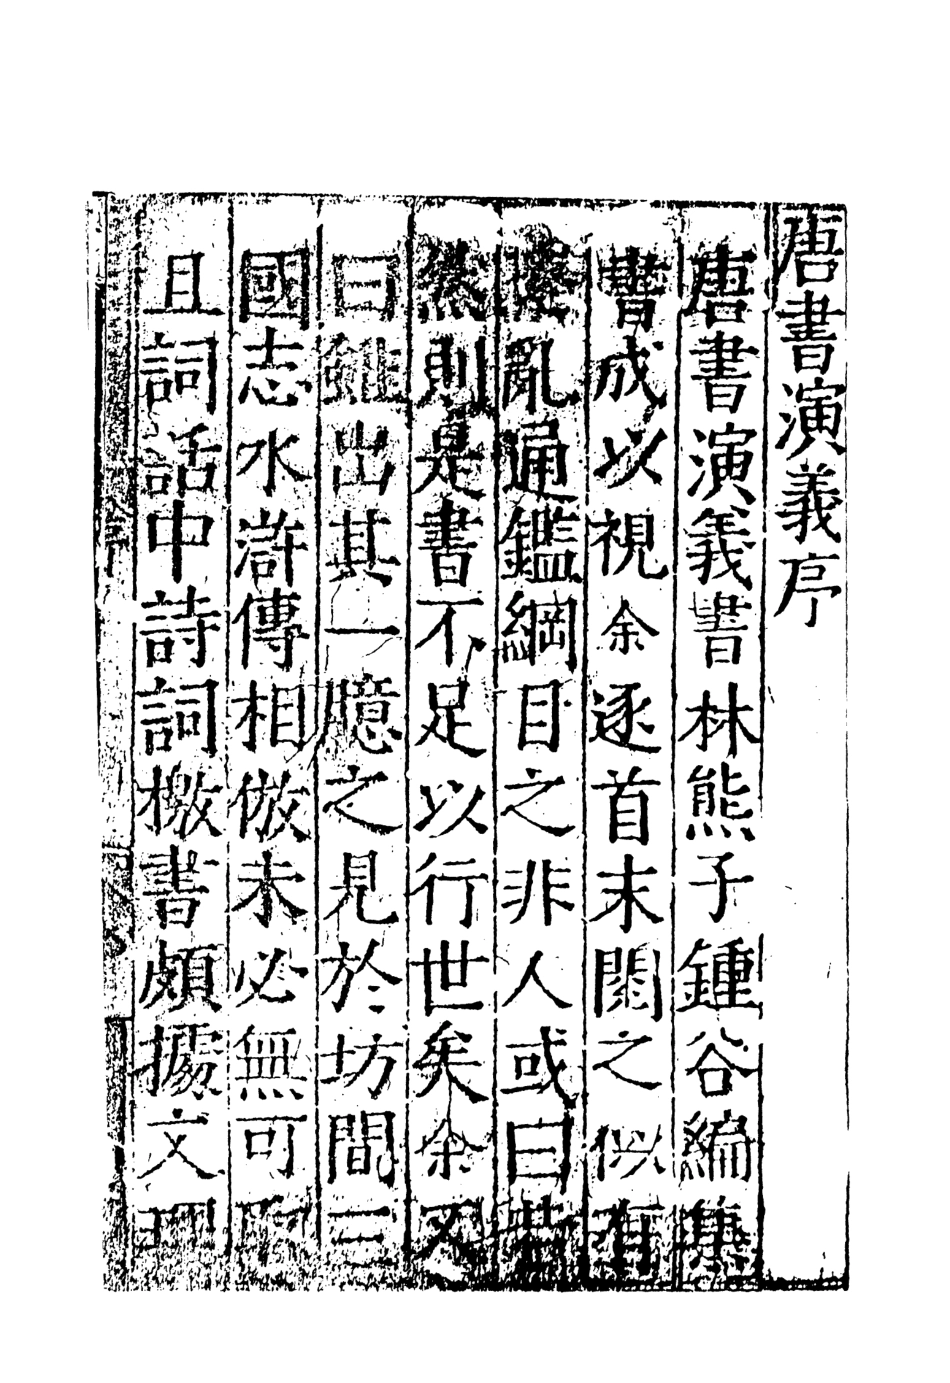 唐書演義序
唐書演義書林熊子鍾谷編集
書成以視余逐首末閱之似有
亂通鑑綱目之非人或曰若
然則是書不足以行世矣余又
曰雖出其一臆之見於坊間三
國志水滸傳相倣未必無可取
且詞話中詩詞檄書頗據文理